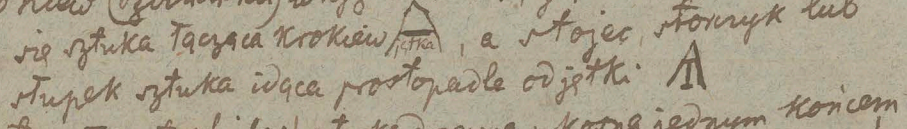 się sztuka łącząca krokiew jętka, a stojec, stolczyk lub
słupek sztuka idąca prostopadle od jętki
jednym końcem